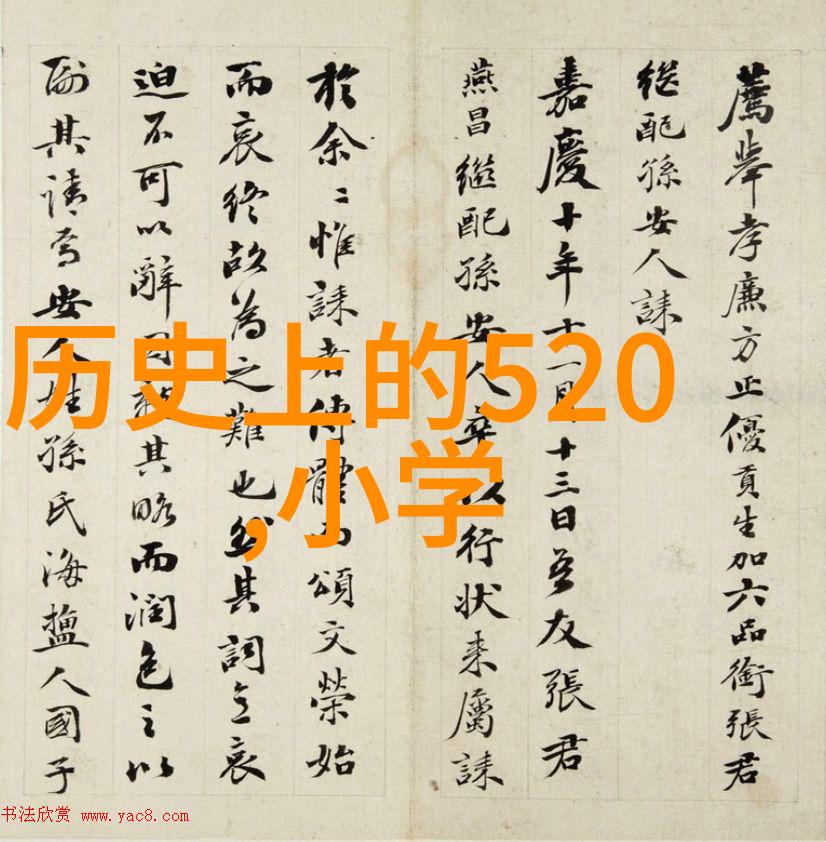 薦舉孝廉方正優貢生加六品銜張君
继配孫安人誄
嘉慶十年十一月十三日吾友張君
燕昌继配孫安人卒以行状来屬誄
於余〻惟誄者傳體而頌文榮始
而哀終故為之難也然其詞立哀
迫不可以辭其略而潤色之以
副其請焉安人姓孫氏海鹽人國子
历史上的520
,小学
书法欣赏 www.yac8.com